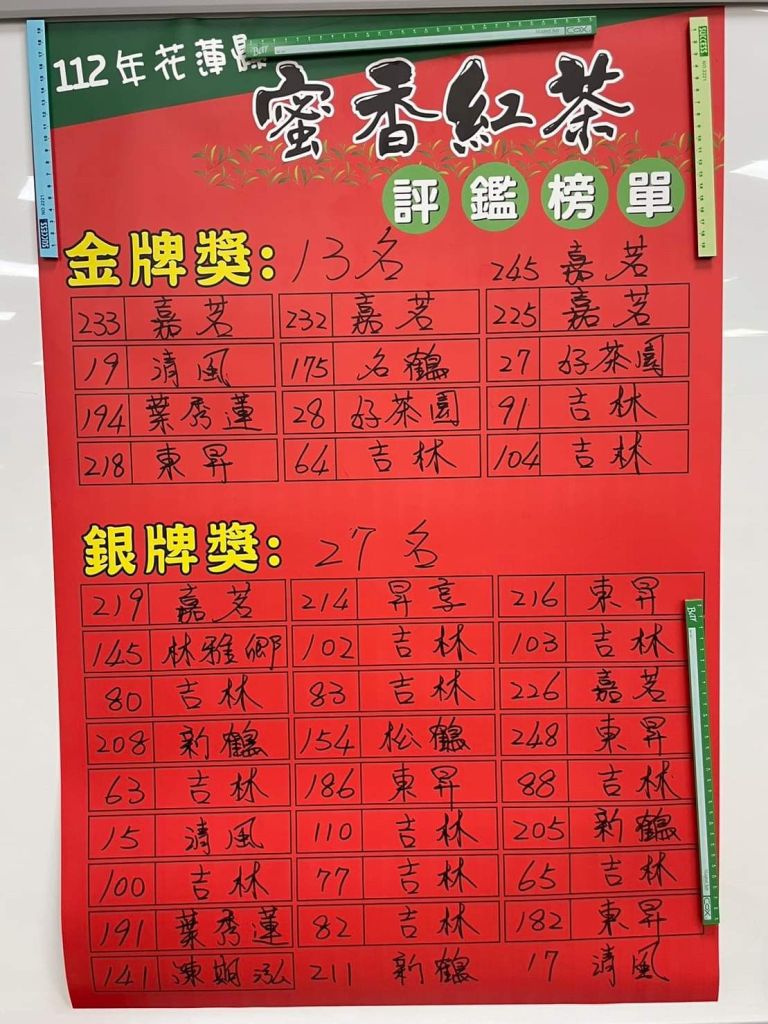 112年花蓮縣
蜜香紅茶
評鑑榜單
金牌獎: 13名 245 嘉茗
233 嘉茗 232 嘉茗 225 嘉茗
19 清風 175 名鶴 27 好茶園
194 葉秀蓮 28 好茶園 91 吉林
218 東昇 64 吉林 104 吉林
銀牌獎: 27名
219 嘉茗 214 昇享 216 東昇
145 林雅鄉 102 吉林 103 吉林
80 吉林 83 吉林 226 嘉茗
208 新鶴 154 松鶴 248 東昇
63 吉林 186 東昇 88 吉林
15 清風 110 吉林 205 新鶴
100 吉林 77 吉林 65 吉林
191 葉秀蓮 82 吉林 182 東昇
141 211 新鶴 17 清風